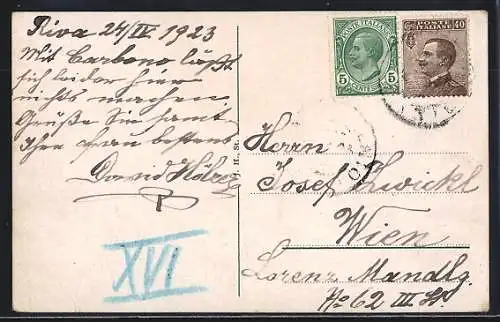 Riva 24/IV 1923
Mit Carbone läßt
sich leider hier
nichts machen
Grüße Sie samt
Ihre Frau bestens
David
POSTE ITALIANE
5 CENT 5
POSTE ITALIANE 40
Herrn
Josef Zwickl
Wien
Lorenz Mandlg.
No 62 III St.
XVI